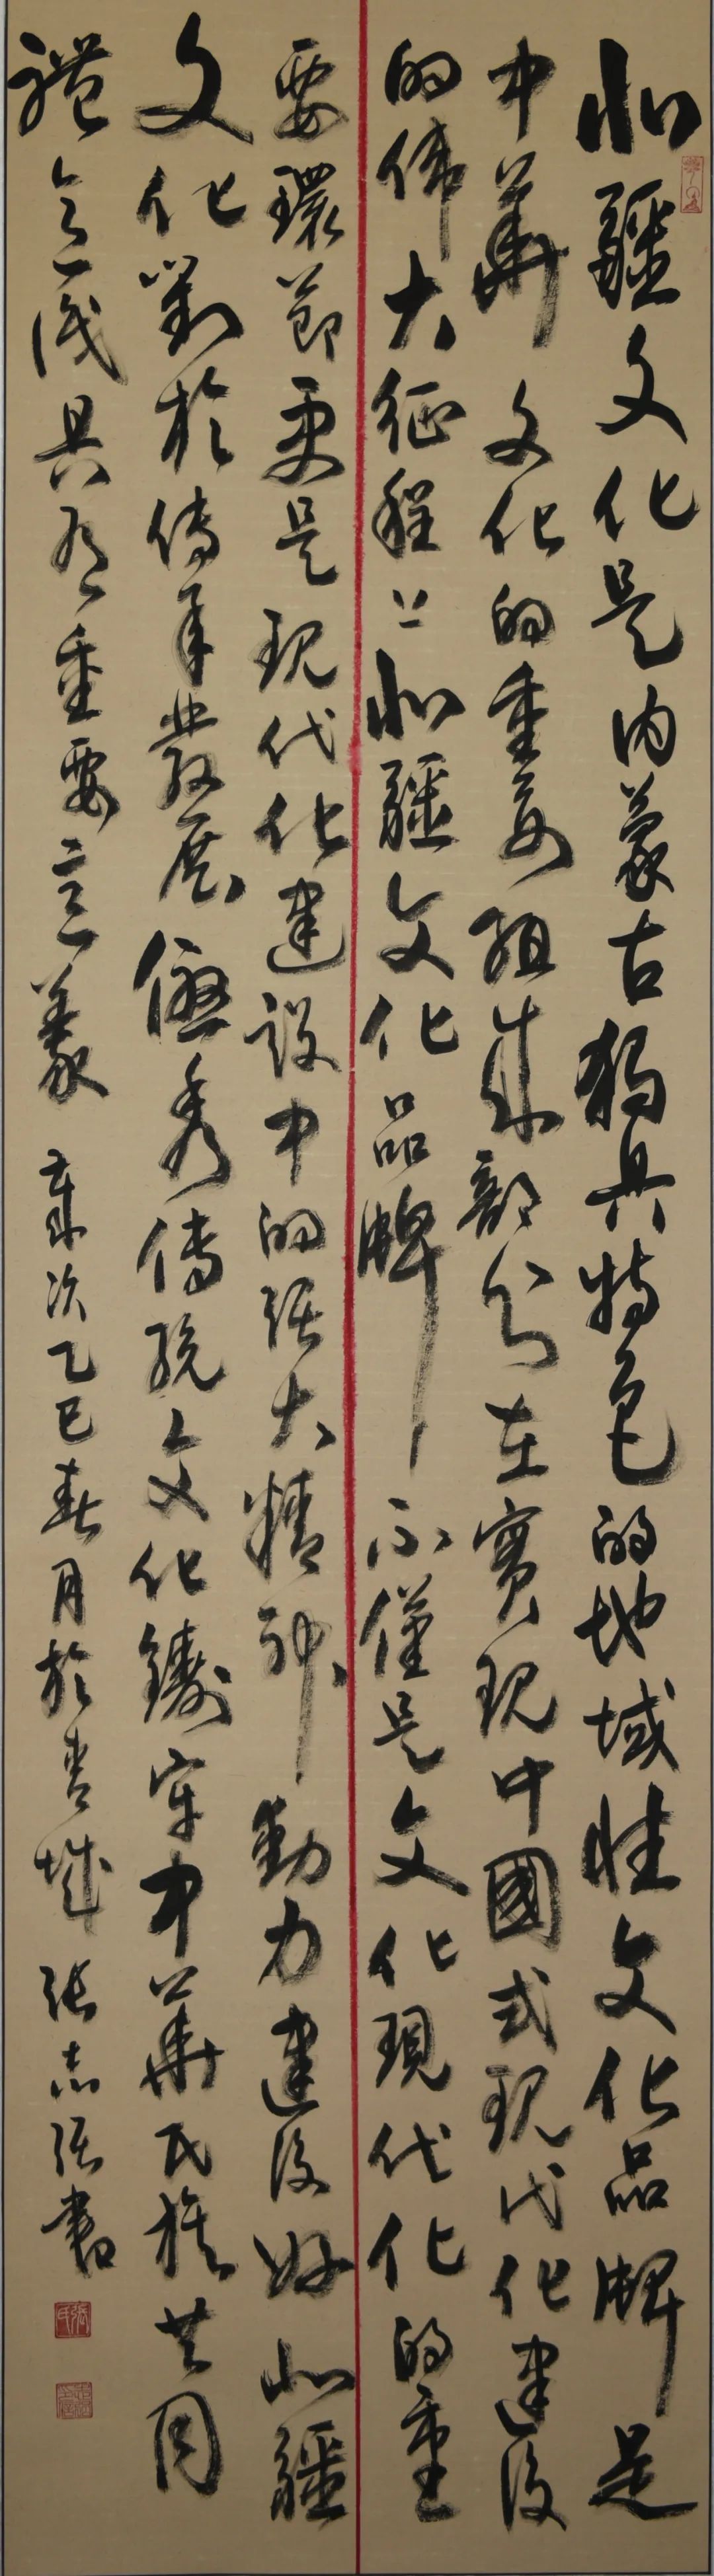 北疆文化是内蒙古独具特色的地域性文化品牌是
中華文化的重要组成部分在實现中國式现代化建设
的伟大征程上北疆文化品牌不僅是文化現代化的重
要環節更是现代化建设中的强大精神動力建设好北疆
文化對於傳承發展優秀傳統文化鑄牢中華民族共同
體意识具有重要意義 歲次乙巳春月於青城 張志强書